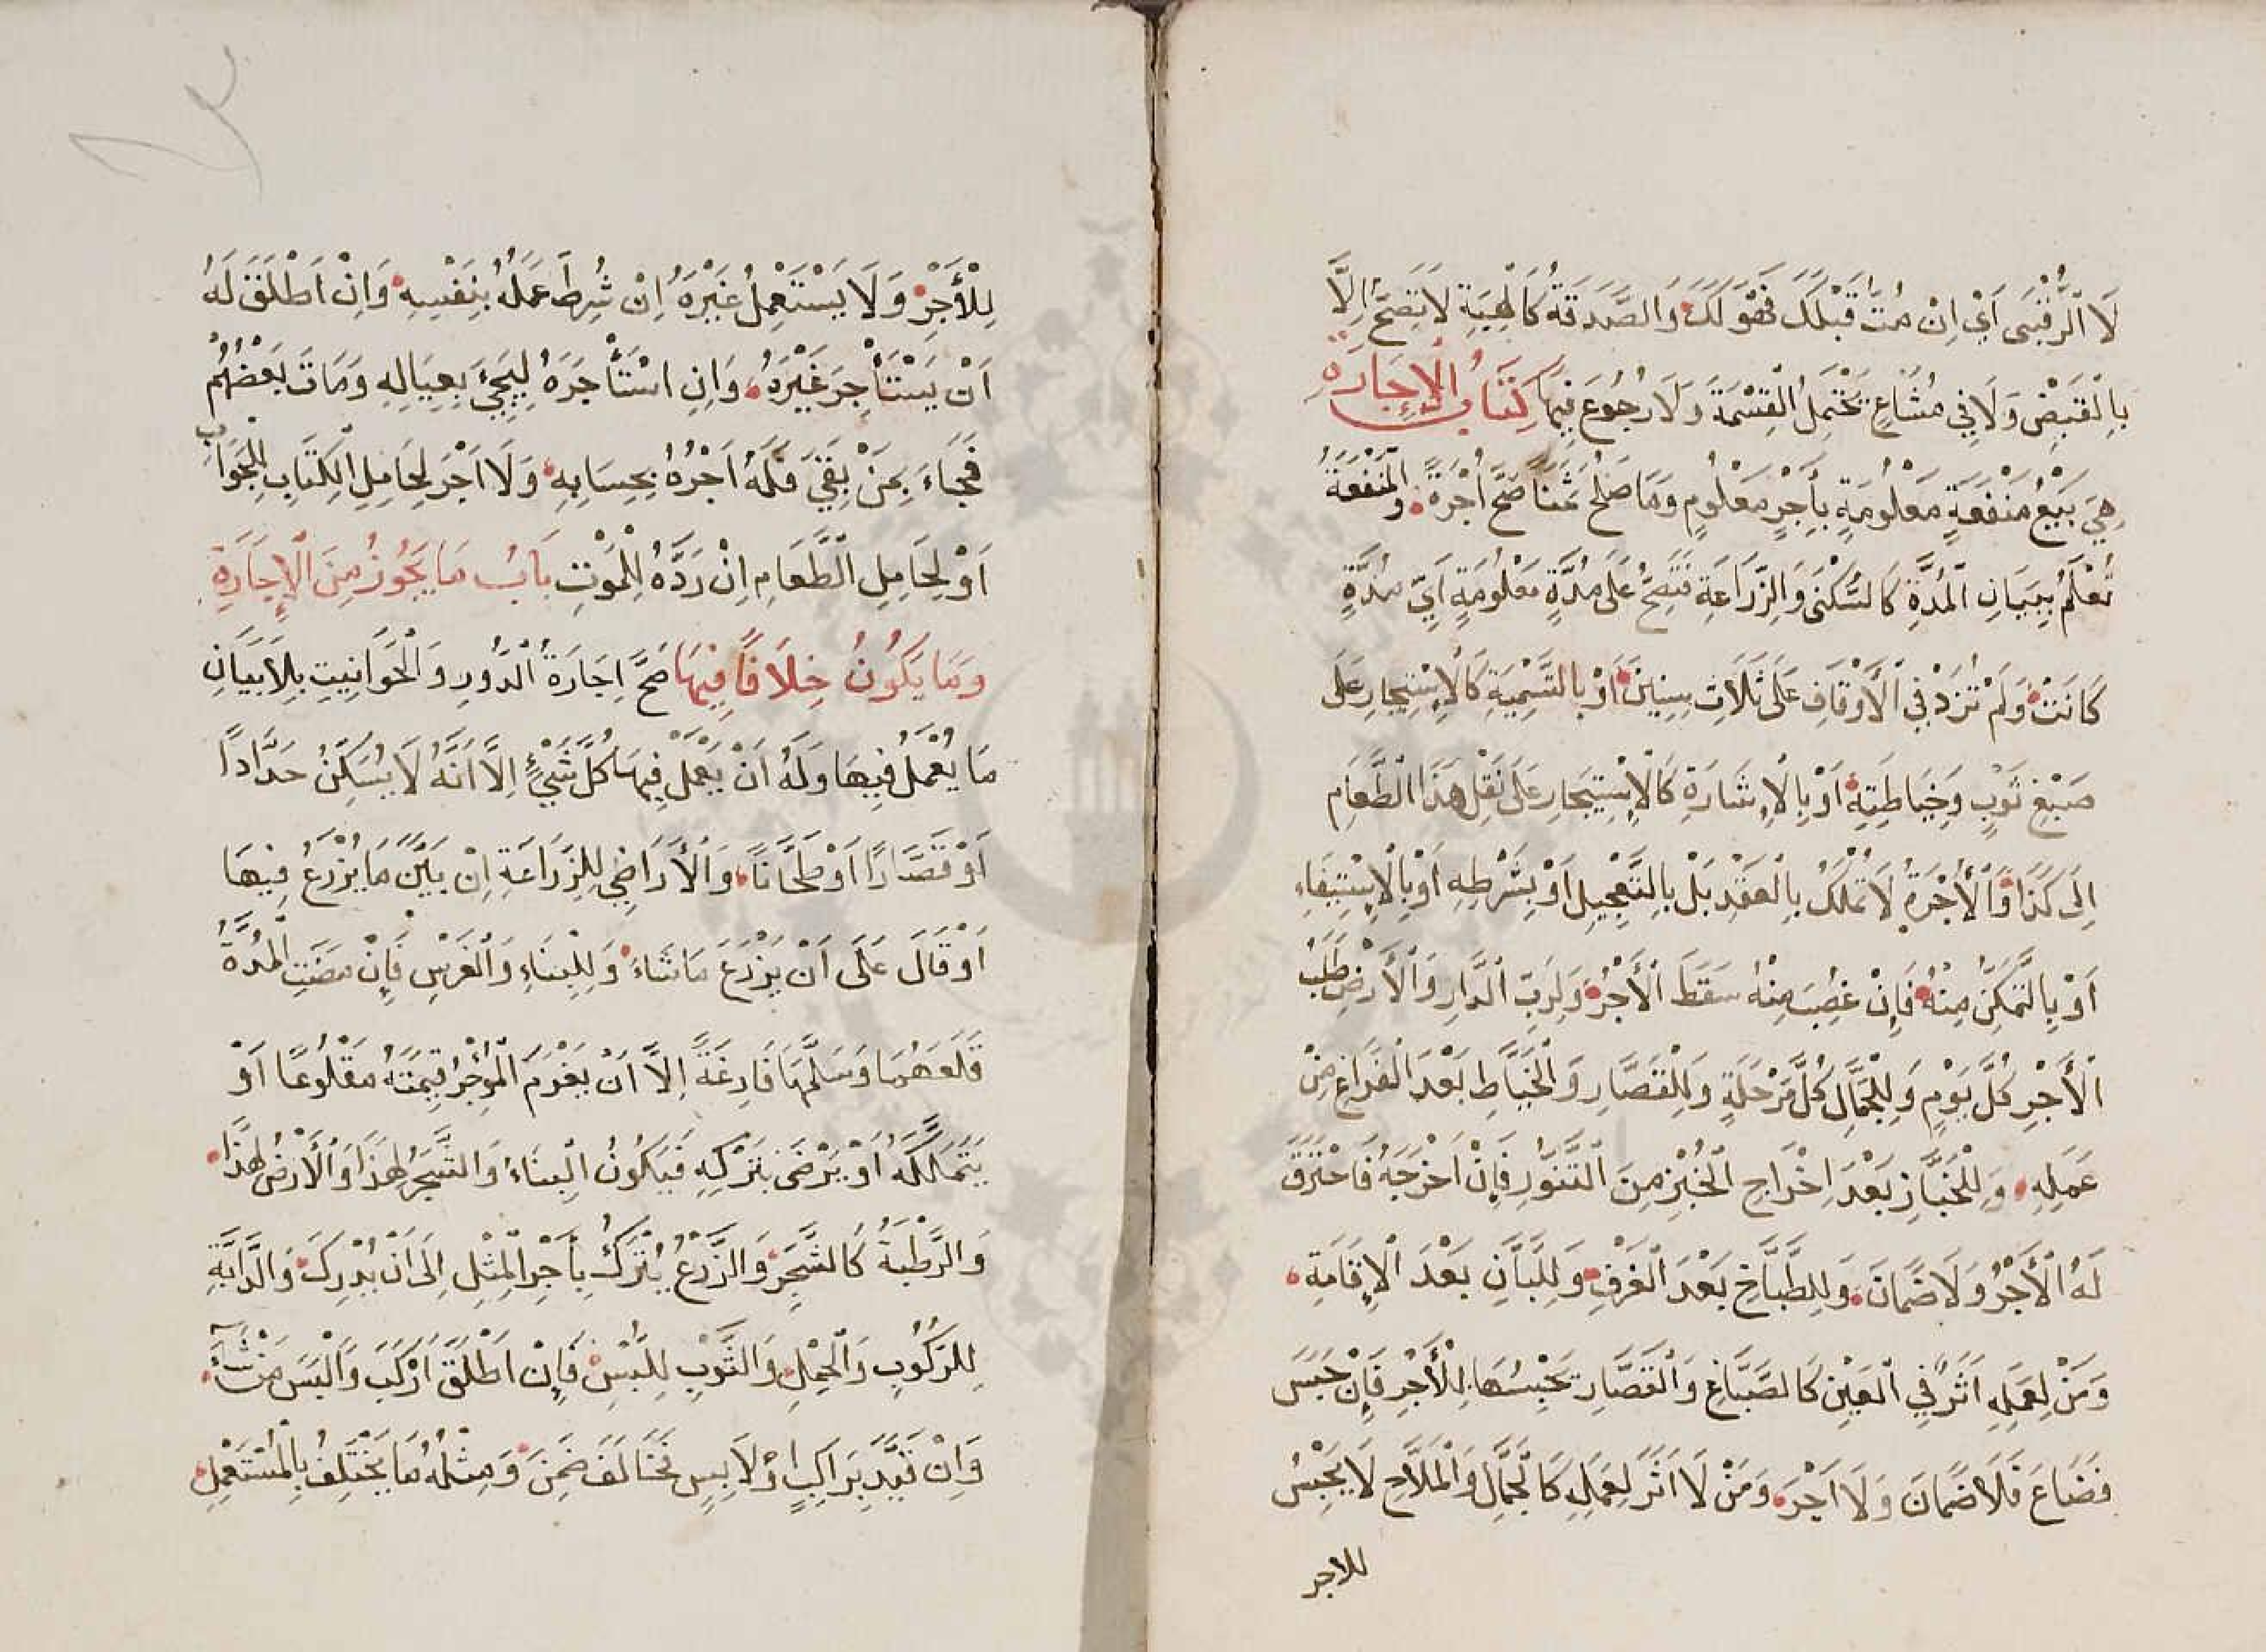 لَا الرُّقْبَى اَيْ اِنْ مُتُّ قَبْلَكَ فَهُوَ لَكَ وَالصَّدَقَةُ كَالْهِبَةِ لَا تَصِحُّ اِلَّا
بِالْقَبْضِ وَلَا فِي مُشَاعٍ يَحْتَمِلُ الْقِسْمَةَ وَلَا رُجُوعَ فِيهَا كِتَابُ الْإِجَارَةِ
هِيَ بَيْعُ مَنْفَعَةٍ مَعْلُومَةٍ بِأَجْرٍ مَعْلُومٍ وَمَا صَلُحَ ثَمَنًا صَحَّ اُجْرَةً وَالْمَنْفَعَةُ
تُعْلَمُ بِبَيَانِ الْمُدَّةِ كَالسُّكْنَى وَالزِّرَاعَةِ فَتَصِحُّ عَلَى مُدَّةٍ مَعْلُومَةٍ اَيِّ مُدَّةٍ
كَانَتْ وَلَمْ تُزَدْ فِي الْأَوْقَافِ عَلَى ثَلَاثِ سِنِينَ اَوْ بِالتَّسْمِيَةِ كَالْإِسْتِيجَارِ عَلَى
صَبْغِ ثَوْبٍ وَخِيَاطَتِهِ اَوْ بِالْإِشَارَةِ كَالْإِسْتِيجَارِ عَلَى نَقْلِ هَذَا الطَّعَامِ
اِلَى كَذَا وَالْأُجْرَةُ لَا تُمْلَكُ بِالْعَقْدِ بَلْ بِالتَّعْجِيلِ اَوْ بِشَرْطِهِ اَوْ بِالْإِسْتِيفَاءِ
اَوْ بِالتَّمَكُّنِ مِنْهُ فَإِنْ غُصِبَ مِنْهُ سَقَطَ الْأَجْرُ وَلِرَبِّ الدَّارِ وَالْأَرْضِ طَلَبُ
الْأَجْرِ كُلَّ يَوْمٍ وَلِلْجَمَّالِ كُلَّ مَرْحَلَةٍ وَلِلْقَصَّارِ وَالْخَيَّاطِ بَعْدَ الْفَرَاغِ مِنْ
عَمَلِهِ وَلِلْخَبَّازِ بَعْدَ اِخْرَاجِ الْخُبْزِ مِنَ التَّنُّورِ فَإِنْ اَخْرَجَهُ فَاحْتَرَقَ
لَهُ الْأَجْرُ وَلَا ضَمَانَ وَلِلطَّبَّاخِ بَعْدَ الْغَرْفِ وَلِلَّبَّانِ بَعْدَ الْإِقَامَةِ
وَمَنْ لِعَمَلِهِ اَثَرٌ فِي الْعَيْنِ كَالصَّبَّاغِ وَالْقَصَّارِ يَحْبِسُهَا لِلْأَجْرِ فَإِنْ حَبَسَ
فَضَاعَ فَلَا ضَمَانَ وَلَا اَجْرَ وَمَنْ لَا اَثَرَ لِعَمَلِهِ كَالْجَمَّالِ وَالْمَلَّاحِ لَا يَحْبِسُ
للاجر
لِلْأَجْرِ وَلَا يَسْتَعْمِلُ غَيْرَهُ اِنْ شُرِطَ عَمَلُهُ بِنَفْسِهِ وَاِنْ اَطْلَقَ لَهُ
اَنْ يَسْتَأْجِرَ غَيْرَهُ وَاِنِ اسْتَأْجَرَهُ لِيَجِيْءَ بِعِيَالِهِ وَمَاتَ بَعْضُهُمْ
فَجَاءَ بِمَنْ بَقِيَ فَلَهُ اَجْرُهُ بِحِسَابِهِ وَلَا اَجْرَ لِحَامِلِ الْكِتَابِ لِلْجَوَابِ
اَوْ لِحَامِلِ الطَّعَامِ اِنْ رَدَّهُ لِلْمَوْتِ بَابُ مَا يَجُوزُ مِنَ الْإِجَارَةِ
وَمَا يَكُونُ خِلَافًا فِيهَا صَحَّ اِجَارَةُ الدُّورِ وَالْحَوَانِيتِ بِلَا بَيَانِ
مَا يُعْمَلُ فِيهَا وَلَهُ اَنْ يَعْمَلَ فِيهَا كُلَّ شَيْءٍ اِلَّا اَنَّهُ لَا يُسَكِّنُ حَدَّادًا
اَوْ قَصَّارًا اَوْ طَحَّانًا وَالْأَرَاضِي لِلزِّرَاعَةِ اِنْ بَيَّنَ مَا يُزْرَعُ فِيهَا
اَوْ قَالَ عَلَى اَنْ يَزْرَعَ مَا شَاءَ وَلِلْبِنَاءِ وَالْغَرْسِ فَإِنْ مَضَتِ الْمُدَّةُ
قَلَعَهُمَا وَسَلَّمَهَا فَارِغَةً اِلَّا اَنْ يَغْرَمَ الْمُؤْجِرُ قِيمَتَهُ مَقْلُوعًا اَوْ
يَتَمَلَّكَهُ اَوْ يَرْضَى بِتَرْكِهِ فَيَكُونُ الْبِنَاءُ وَالشَّجَرُ لِهَذَا وَالْأَرْضُ لِهَذَا
وَالرَّطْبَةُ كَالشَّجَرِ وَالزَّرْعُ يُتْرَكُ بِأَجْرِ الْمِثْلِ اِلَى اَنْ يُدْرِكَ وَالدَّابَّةِ
لِلرُّكُوبِ وَالْحَمْلِ وَالثَّوْبِ لِلُّبْسِ فَإِنْ اَطْلَقَ اَرْكَبَ وَاَلْبَسَ مَنْ شَآءَ
وَاِنْ قَيَّدَ بِرَاكِبٍ اَوْ لَابِسٍ فَخَالَفَ ضَمِنَ وَمِثْلُهُ مَا يَخْتَلِفُ بِالْمُسْتَعْمِلِ